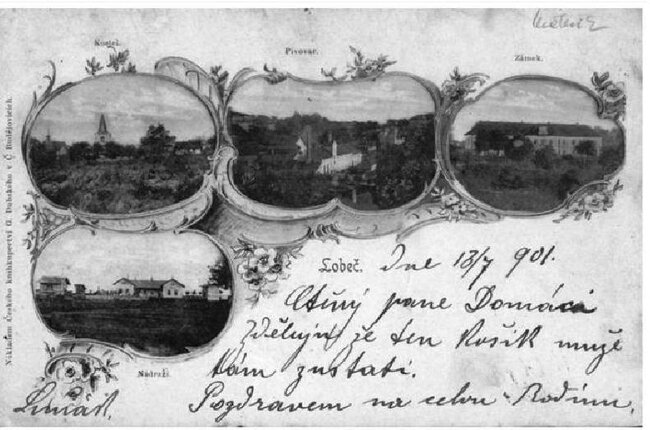 Kostel.
Pivovar.
Zámek.
Nákladem Českého knihkupectví G. Dubského v Č. Budějovicích.
Nádraží.
Lobeč. Dne 13/7 901.
Ctěný pane Domácí
Sděluji že ten Košík může
tam zustati.
Pozdravem na celou Rodinu.